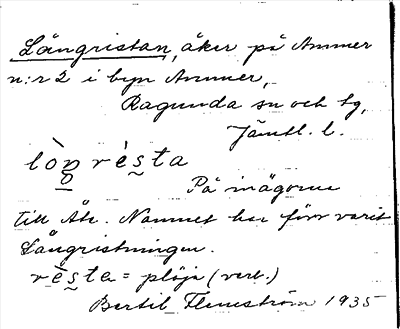 Långristan, åker på Ammer
n:r 2 i byn Ammer,
Ragunda sn och tg,
Jämtl. l.
lòŋ rès̱ta
På inägorna
till Åk. Namnet har förr varit
Långristningen.
rès̱ta = plöja (verb.)
Bertil Flemström 1935